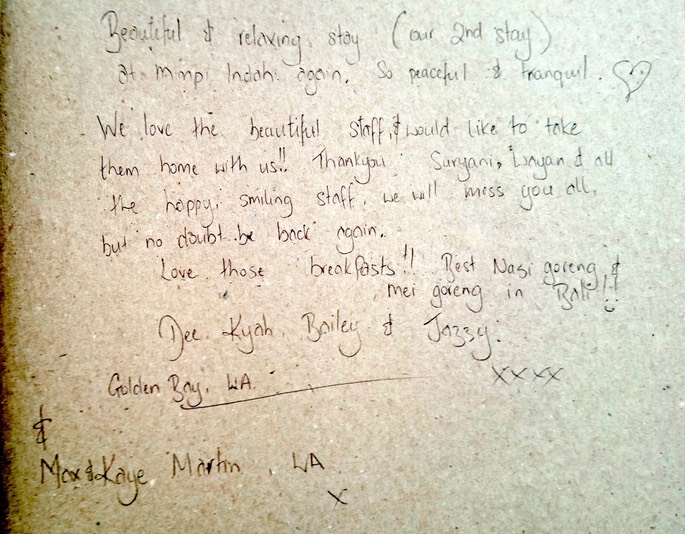 Beautiful & relaxing stay (our 2nd stay)
at Mimpi Indah again. So peaceful & tranquil. ♡
We love the beautiful staff, & would like to take
them home with us!! Thankyou Suryani, Wayan & all
the happy, smiling staff. we will miss you all,
but no doubt..be back again.
Love those breakfasts!! Best Nasi goreng &
mei goreng in Bali!!
Dee, Kyah, Bailey & Jazzy.
Golden Bay, WA. xxxx
&
Max & Kaye Martin, WA
x